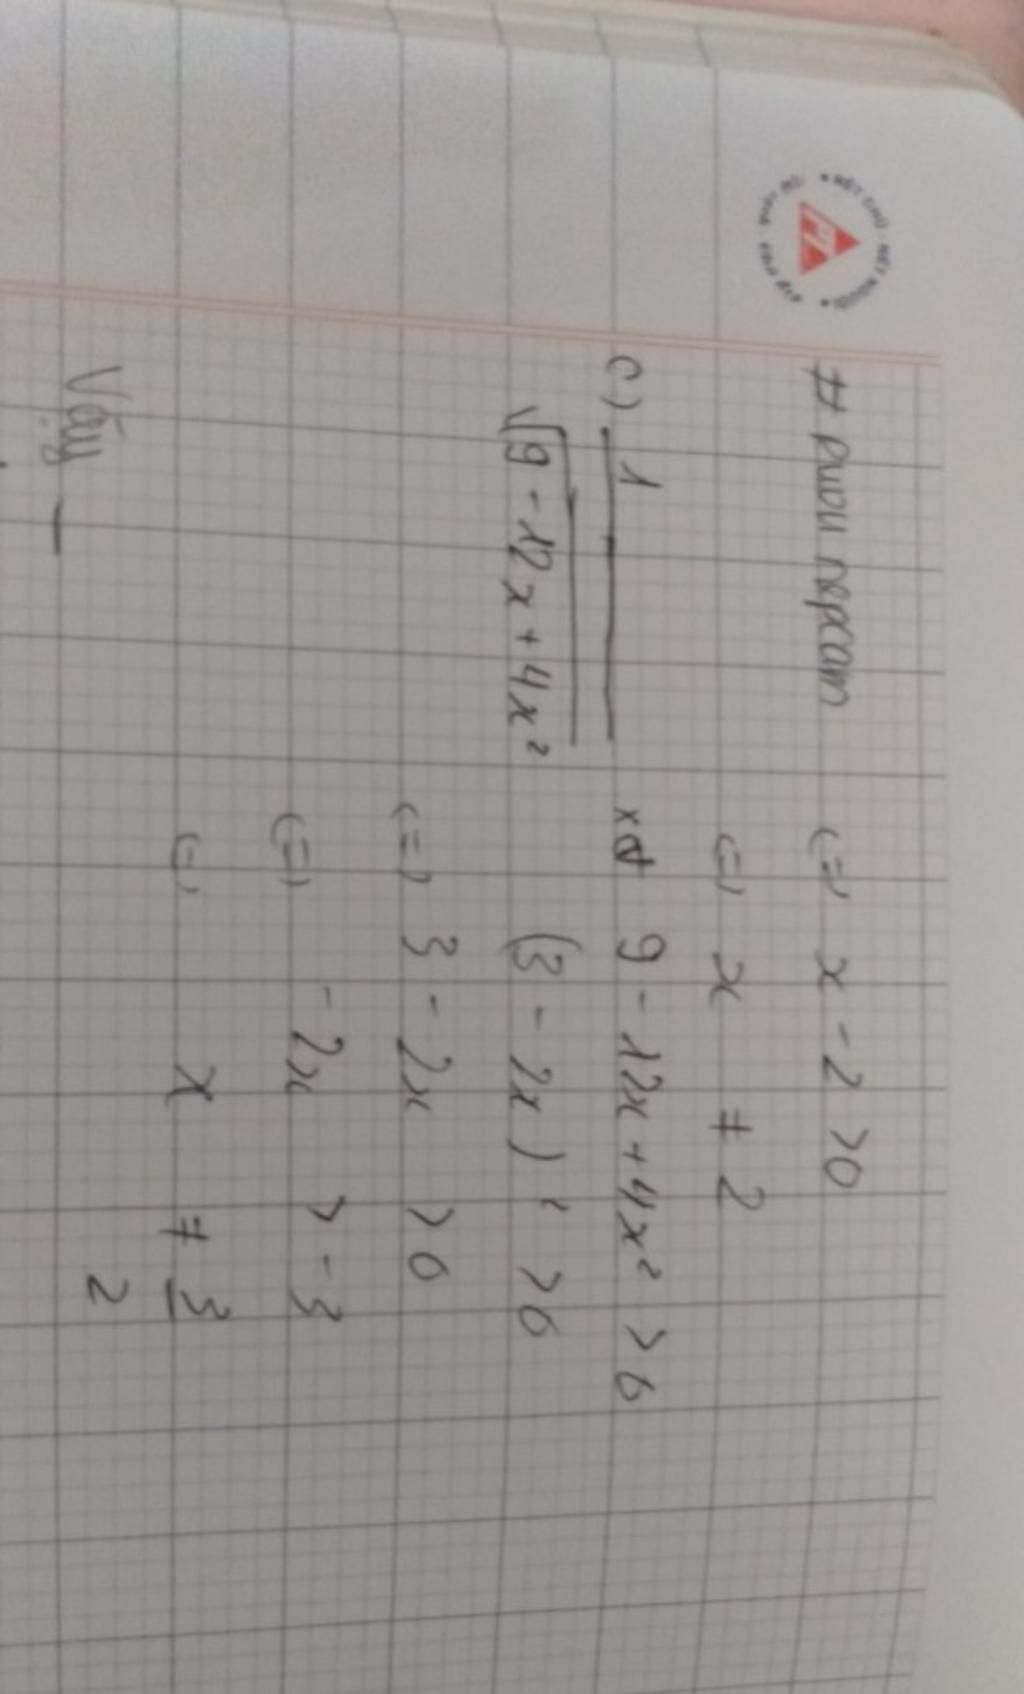 (=) x - 2 > 0
(=) x ≠ 2
c) 1 xđ 9 - 12x + 4x² > 0
√9 - 12x + 4x² (3 - 2x)² > 0
(=) 3 - 2x > 0
(=) - 2x > - 3
(=) x ≠ 3
2
Vậy _